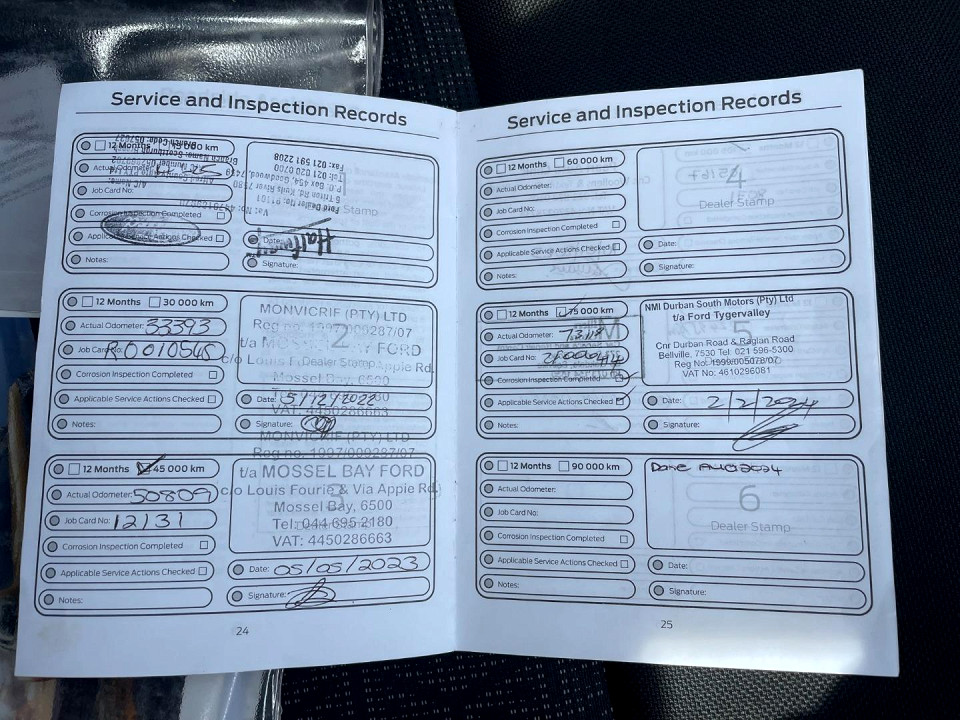 Service and Inspection Records
12 Months 15 000 km
Actual Odometer:
Job Card No:
Corrosion Inspection Completed
Applicable Service Actions Checked
Notes:
Fax: 021 591 2208
Tel: 021 020 0700
P.O. Box 459, Goodwood,
Ford Dealer No:
Stamp
Date:
Signature:
12 Months 30 000 km
Actual Odometer: 33393
Job Card No:
Corrosion Inspection Completed
Applicable Service Actions Checked
Notes:
MONVICRIF (PTY) LTD
Reg no. 1997/009287/07
2
t/a MOSSEL BAY FORD
c/o Louis F Dealer Stamp Apple Rd.
Mossel Bay, 6500
VAT: 4450286663
Date: 5/12/2022
Signature:
MONVICRIF (PTY) LTD
Reg no. 1997/009287/07
12 Months 45 000 km
Actual Odometer: 50809
Job Card No: 12131
Corrosion Inspection Completed
Applicable Service Actions Checked
Notes:
t/a MOSSEL BAY FORD
c/o Louis Fourie & Via Appie Rd.
3
Mossel Bay, 6500
Tel: 044 695 2180
VAT: 4450286663
Date: 05/05/2023
Signature:
24
Service and Inspection Records
12 Months 60 000 km
Actual Odometer:
Job Card No:
Corrosion Inspection Completed
Applicable Service Actions Checked
Notes:
4
Dealer Stamp
Date:
Signature:
12 Months 75 000 km
Actual Odometer:
Job Card No:
Corrosion Inspection Completed
Applicable Service Actions Checked
Notes:
NMI Durban South Motors (Pty) Ltd
t/a Ford Tygervalley
5
Cnr Durban Road & Raglan Road
Bellville, 7530 Tel: 021 596-5300
Reg No: 1999/005078/07
VAT No: 4610296081
Date: 2/2/2024
Signature:
12 Months 90 000 km
Actual Odometer:
Job Card No:
Corrosion Inspection Completed
Applicable Service Actions Checked
Notes:
Done AUG 2024
6
Dealer Stamp
Date:
Signature:
25